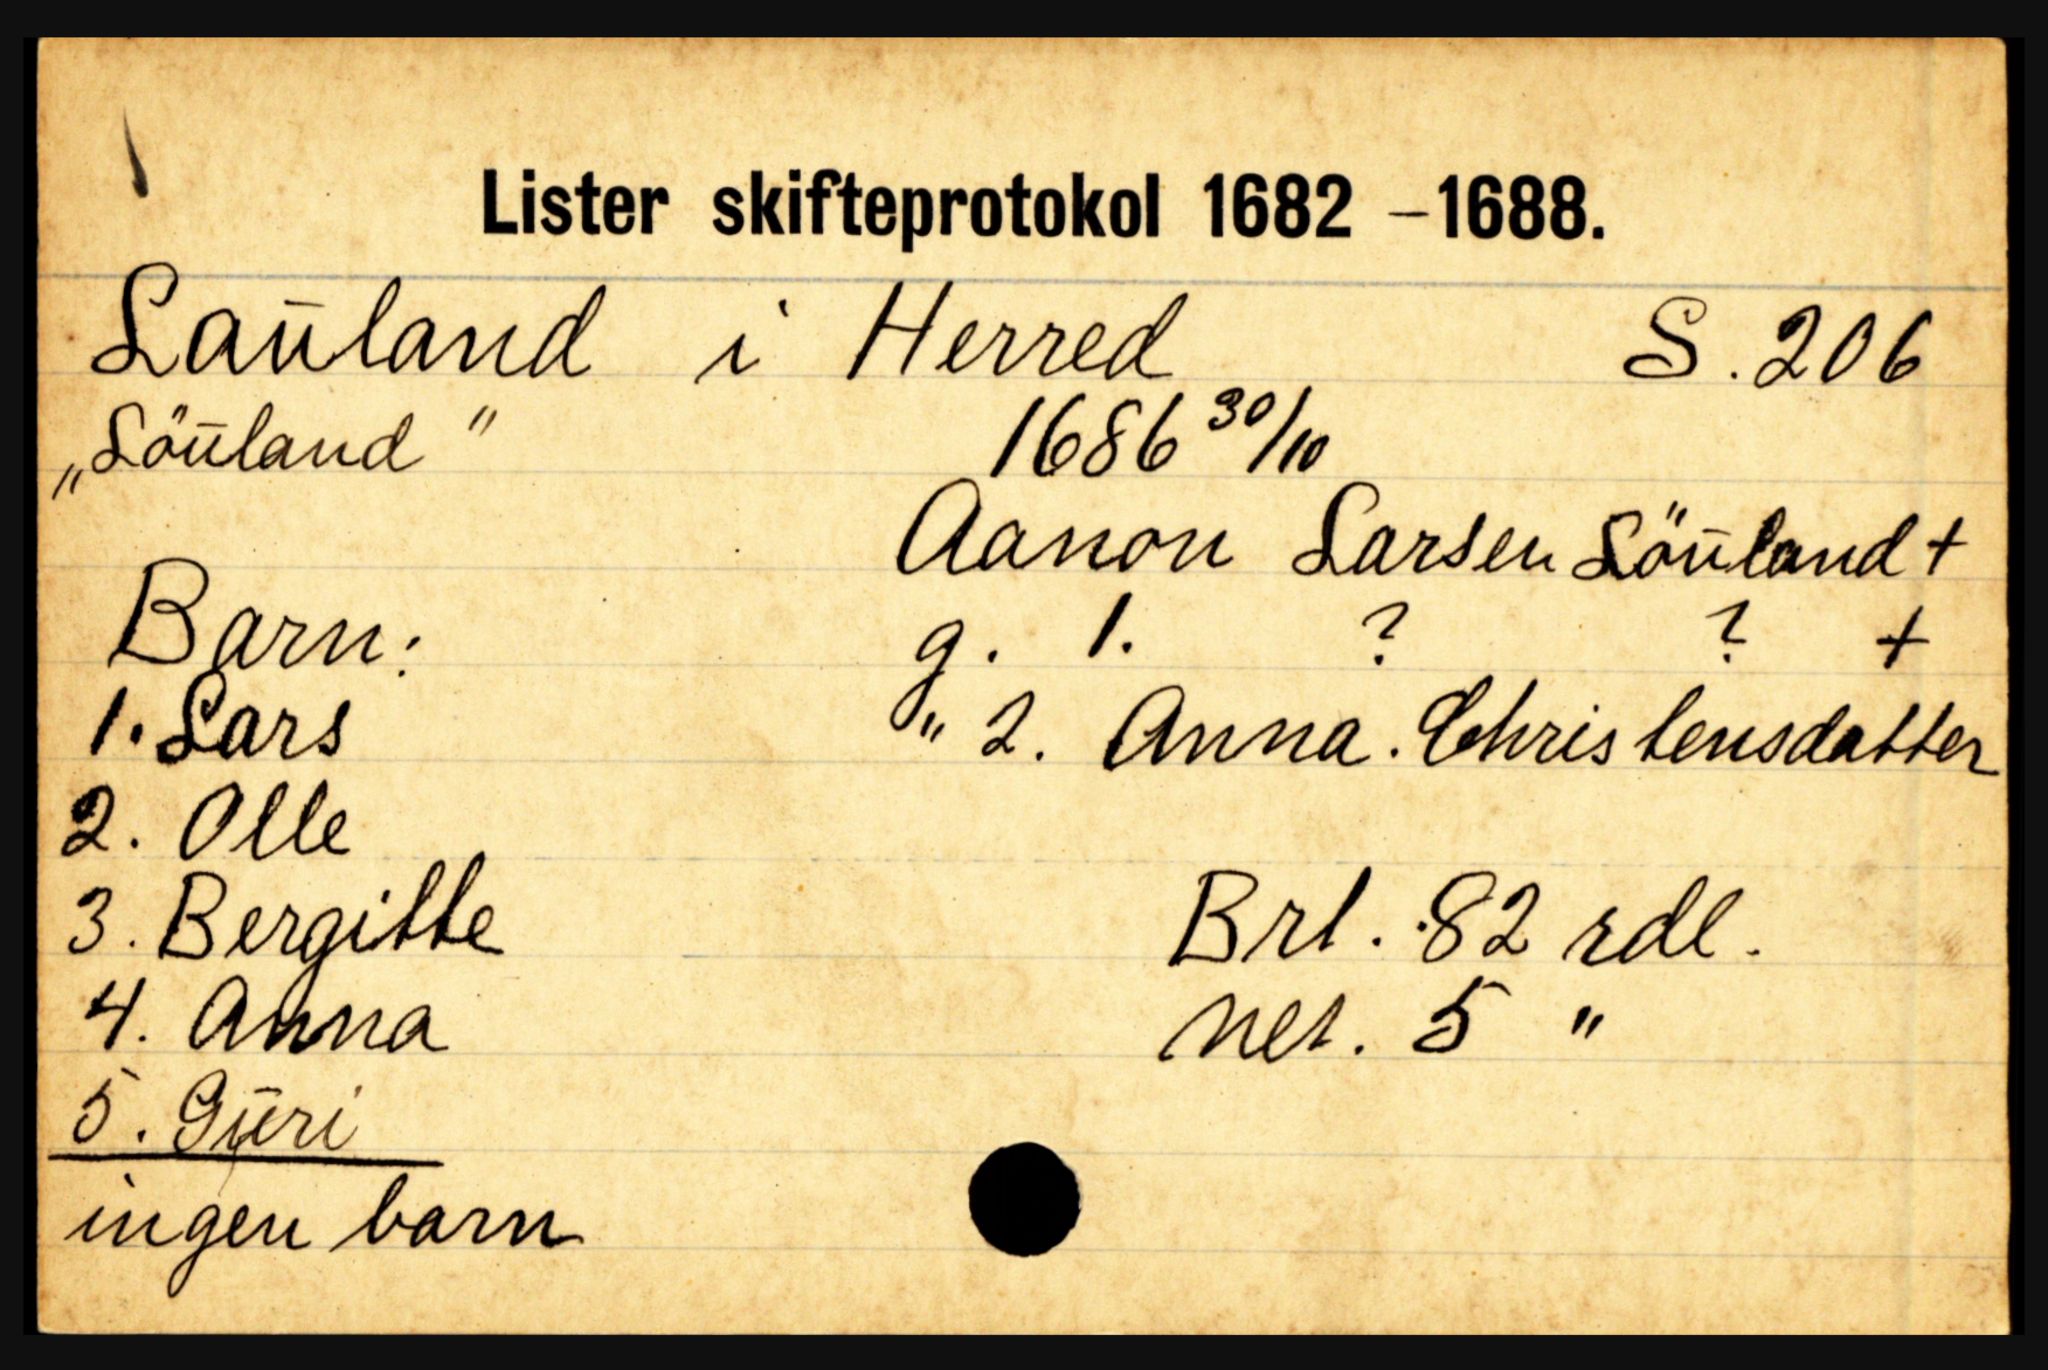 Lister skifteprotokol 1682 – 1688.
Lauland i Herred S. 206
„Löuland" 1686 30/10
Aanon Larsen Löuland +
Barn: g. 1. ? ? +
1. Lars " 2. Anna. Christensdatter
2. Olle
3. Bergitte Brt. 82 rdl.
4. Anna Net. 5 "
5. Guri
ingen barn